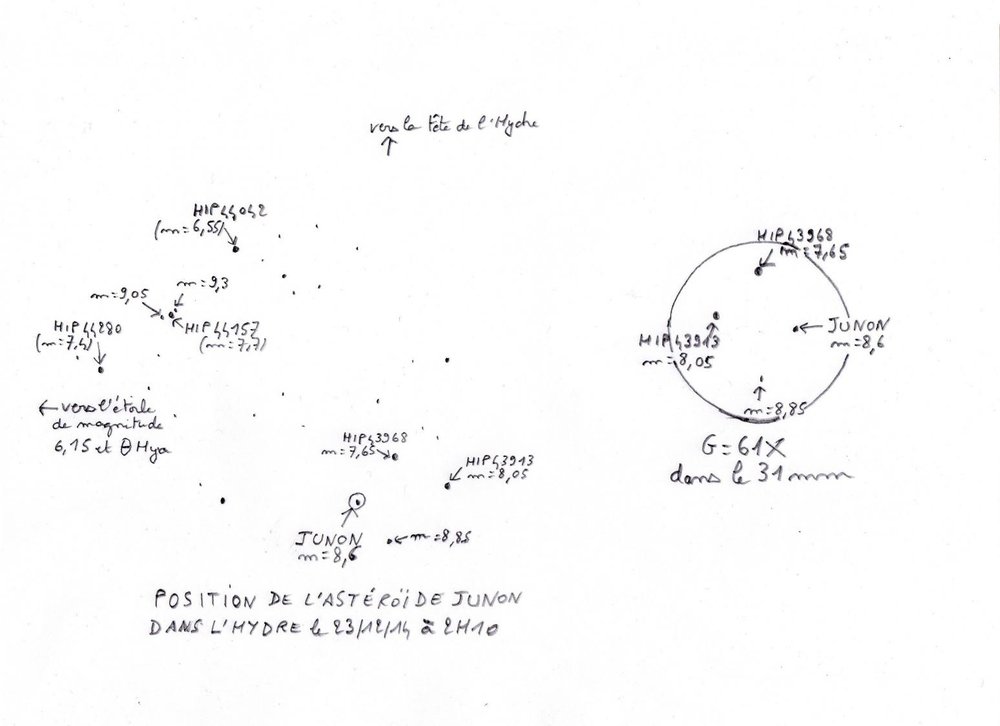 vers la tête de l'Hydre
↑
HIP44042
(m=6,55)
m=9,3
m=9,05
HIP44280
(m=7,4)
HIP44157
(m=7,7)
← vers l'étoile
de magnitude
6,15 et θ Hya
HIP43968
m=7,65
HIP43913
m=8,05
JUNON
m=8,6
m=8,85
POSITION DE L'ASTÉROÏDE JUNON
DANS L'HYDRE le 23/12/14 à 2H10
HIP43968
m=7,65
JUNON
m=8,6
HIP43913
m=8,05
m=8,85
G=61X
dans le 31mm